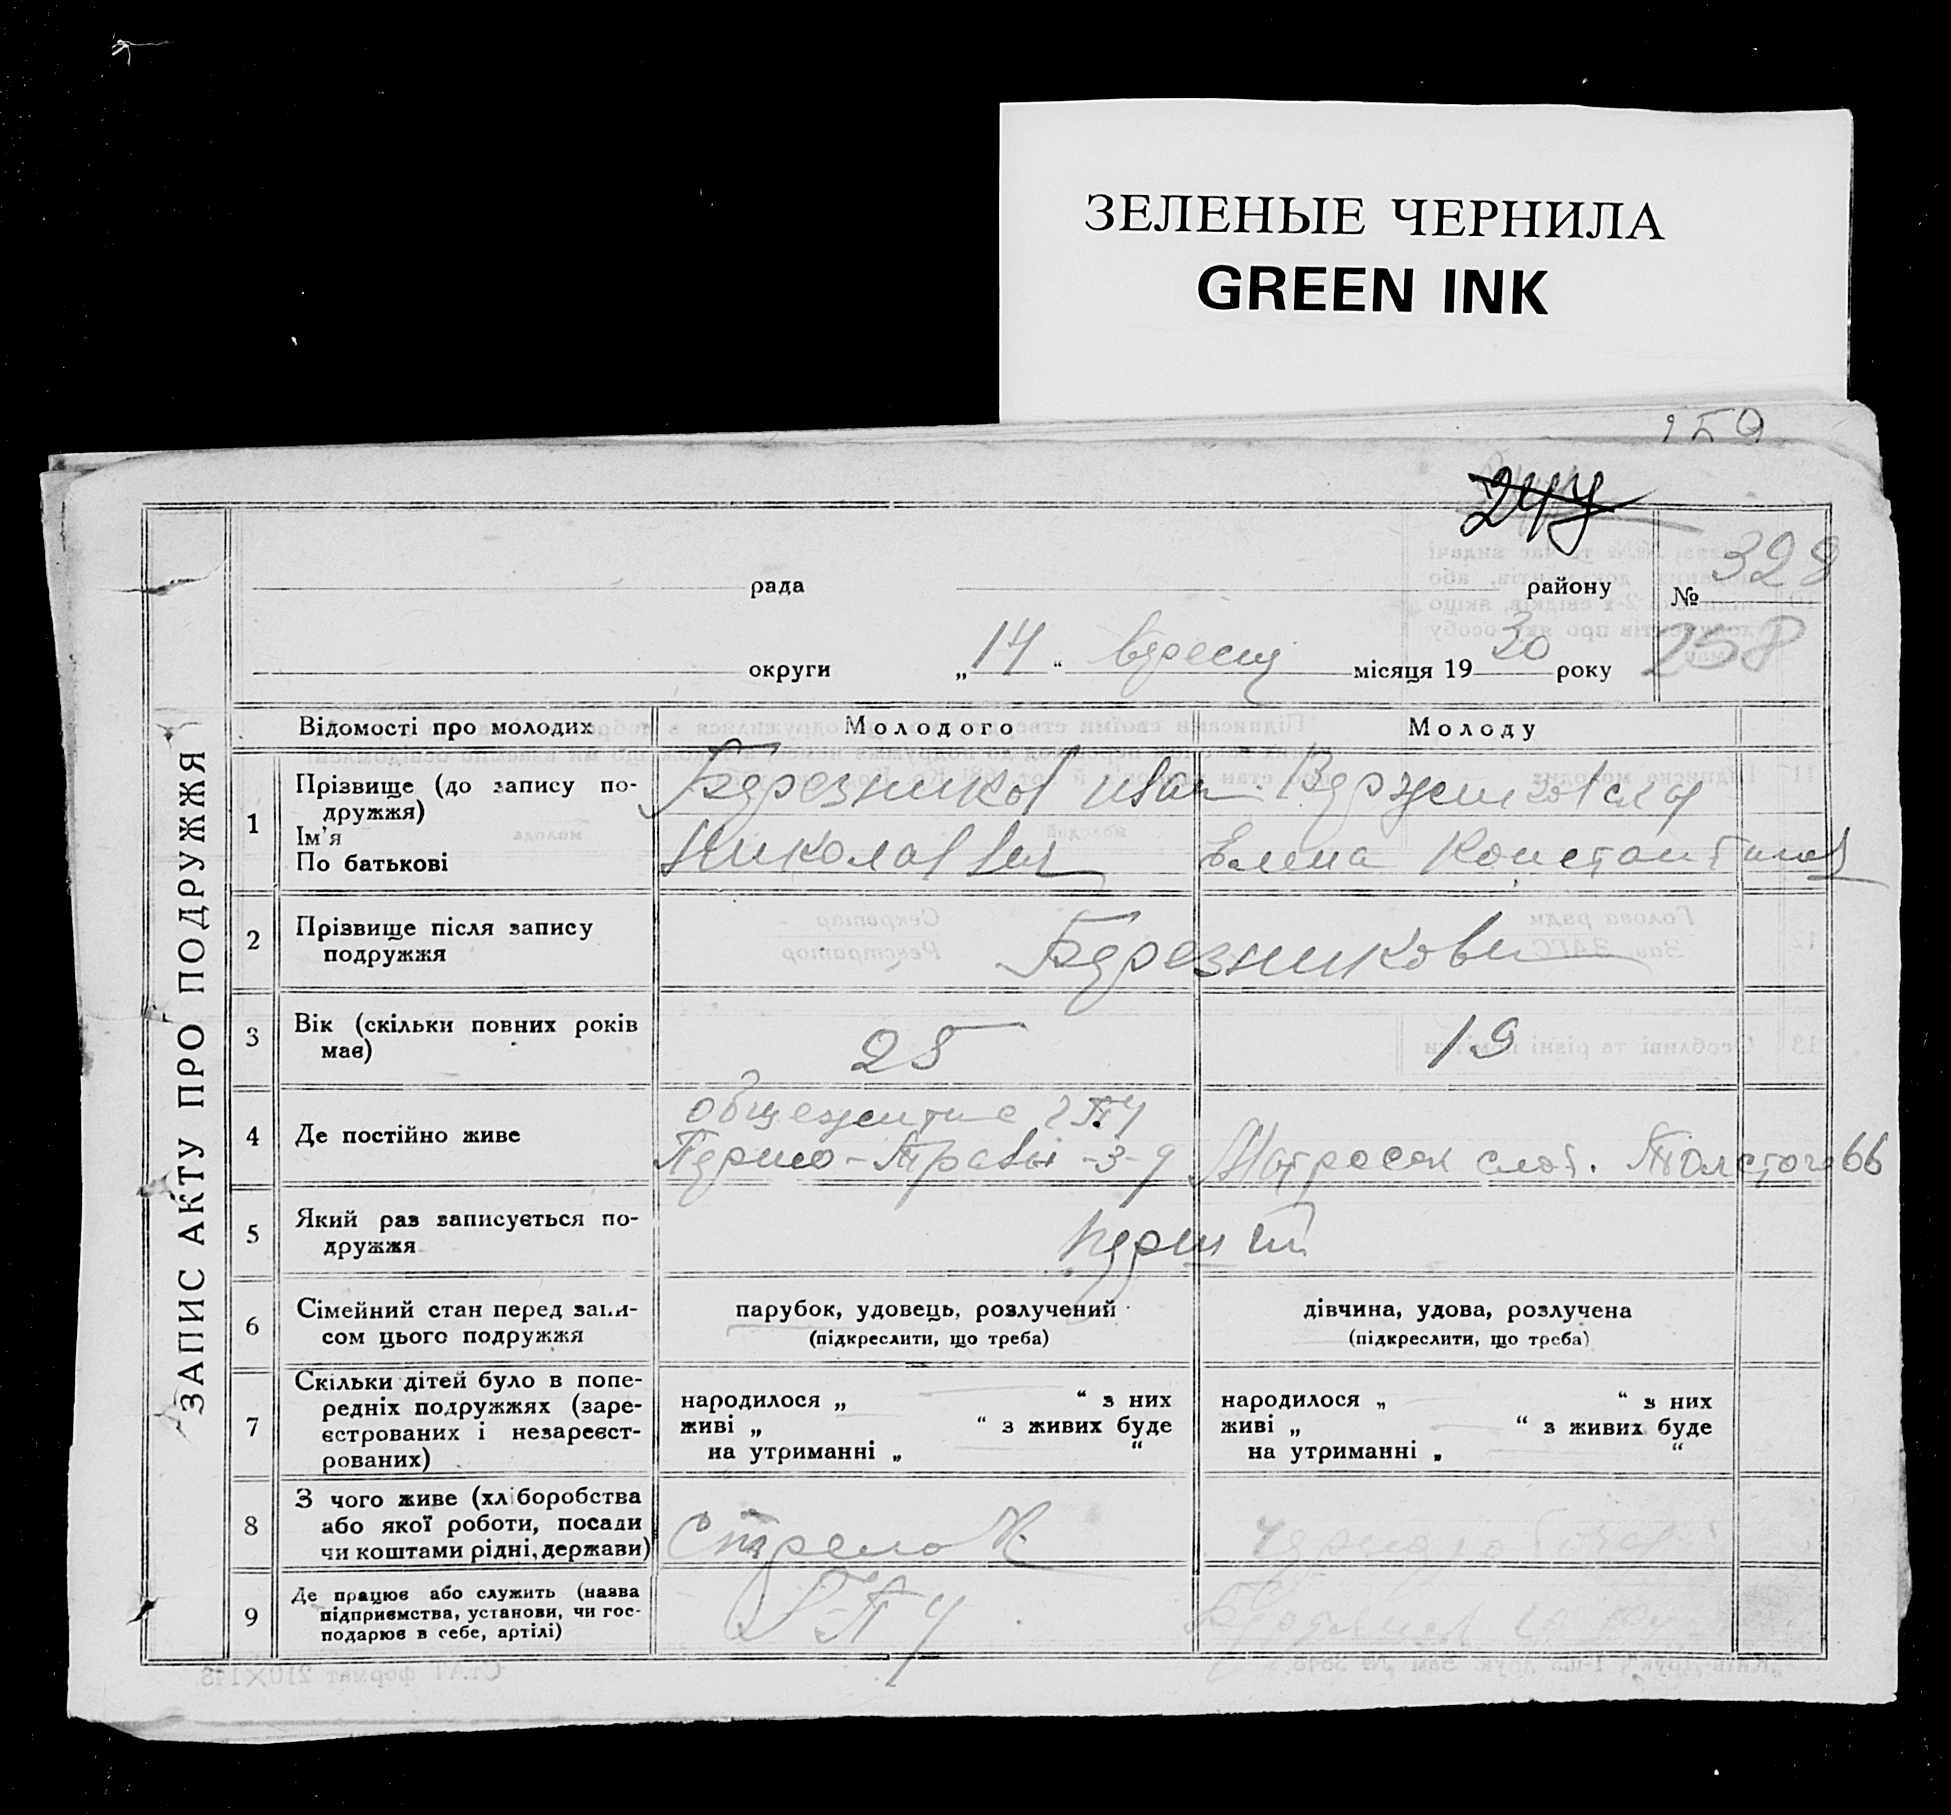 ЗЕЛЕНЫЕ ЧЕРНИЛА
GREEN INK
159
247
рада района № 328
округи „14“ вересня місяця 1930 року 258
ЗАПИС АКТУ ПРО ПОДРУЖЖЯ
Відомості про молодих Молодого Молоду
1 Прізвище (до запису по-
дружжя)
Ім'я
По батькові
Березников Иван
Николаевич
Елена Константинов
2 Прізвище після запису
подружжя
Березникови
3 Вік (скільки повних років
має)
25 19
4 Де постійно живе
общежитие ГПУ
-3-9 Матросск слоб. Толстого 66
5 Який раз записується по-
дружжя
перший
6 Сімейний стан перед запи-
сом цього подружжя
парубок, удовець, розлучений
(підкреслити, що треба)
дівчина, удова, розлучена
(підкреслити, що треба)
7 Скільки дітей було в попе-
редніх подружжях (заре-
єстрованих і незареєст-
рованих)
народилося „ “ з них
живі „ “ з живих буде
на утриманні „ “
народилося „ “ з них
живі „ “ з живих буде
на утриманні „ “
8 З чого живе (хліборобства
або якої роботи, посади
чи коштами рідні, держави)
Стрелок
9 Де працює або служить (назва
підприємства, установи, чи гос-
подарює в себе, артілі)
ГПУ